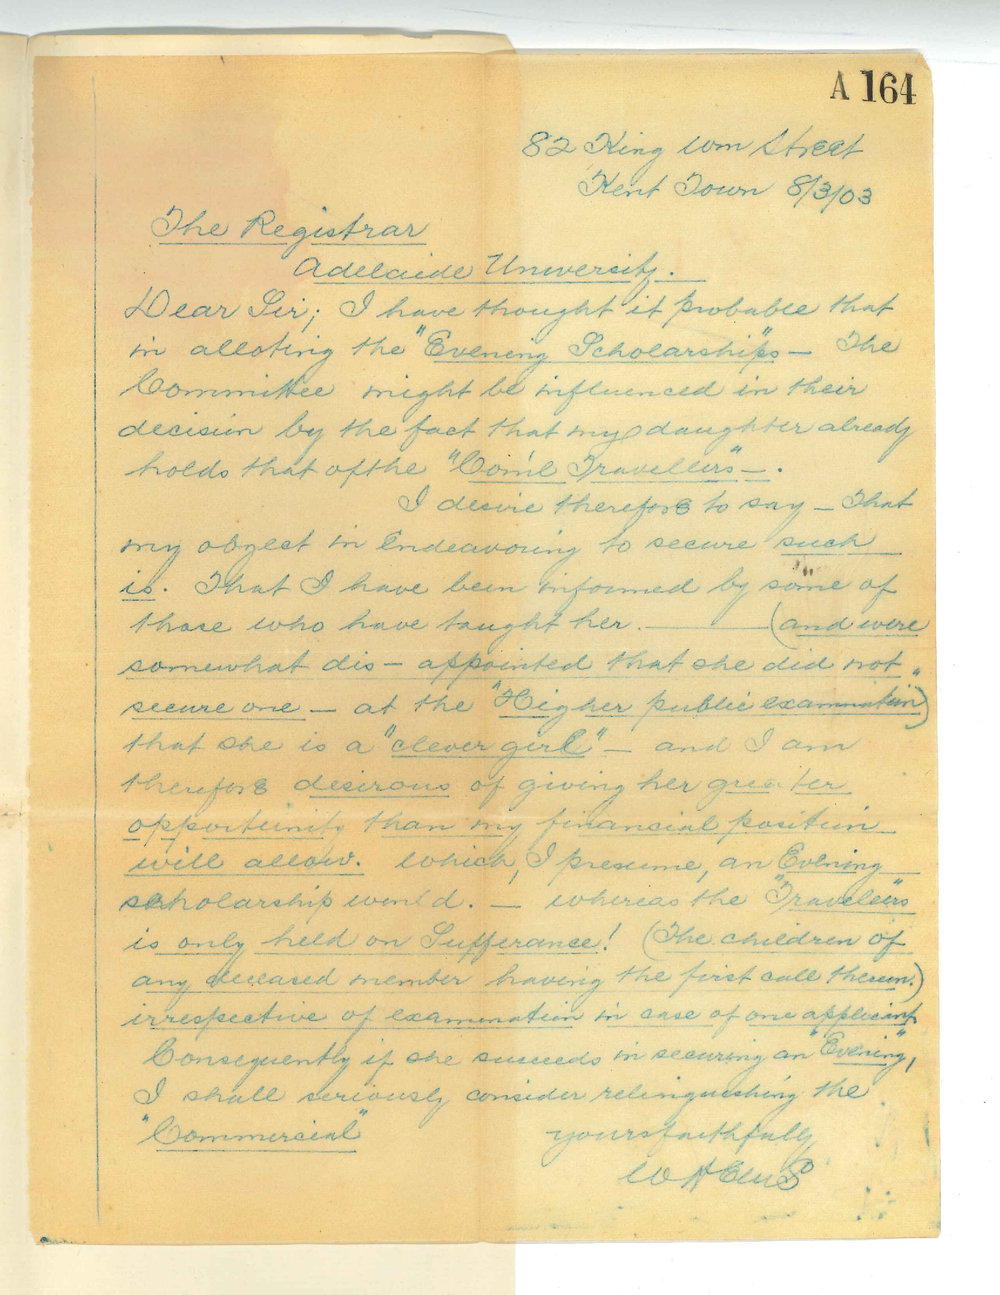 A 164
82 King Wm Street
Kent Town 8/3/03
The Registrar
Adelaide University.
Dear Sir; I have thought it probable that
in alloting the "Evening Scholarships" – The
Committee might be influenced in their
decision by the fact that my daughter already
holds that of the "Com'l Travellers" –.
I desire therefore to say – That
my object in Endeavouring to secure such
is. That I have been informed by some of
those who have taught her. — (and were
somewhat dis – appointed that she did not
secure one – at the "Higher public examination")
that she is a "clever girl" – and I am
therefore desirous of giving her greater
opportunity than my financial position
will allow. Which, I presume, an Evening
scholarship would. – whereas the "Travelers"
is only held on Sufferance! (The children of
any deceased member having the first call thereon.)
irrespective of examination in case of one applicant
Consequently if she succeeds in securing an "Evening",
I shall seriously consider relinquishing the
"Commercial"
yours faithfully
W H Ellis